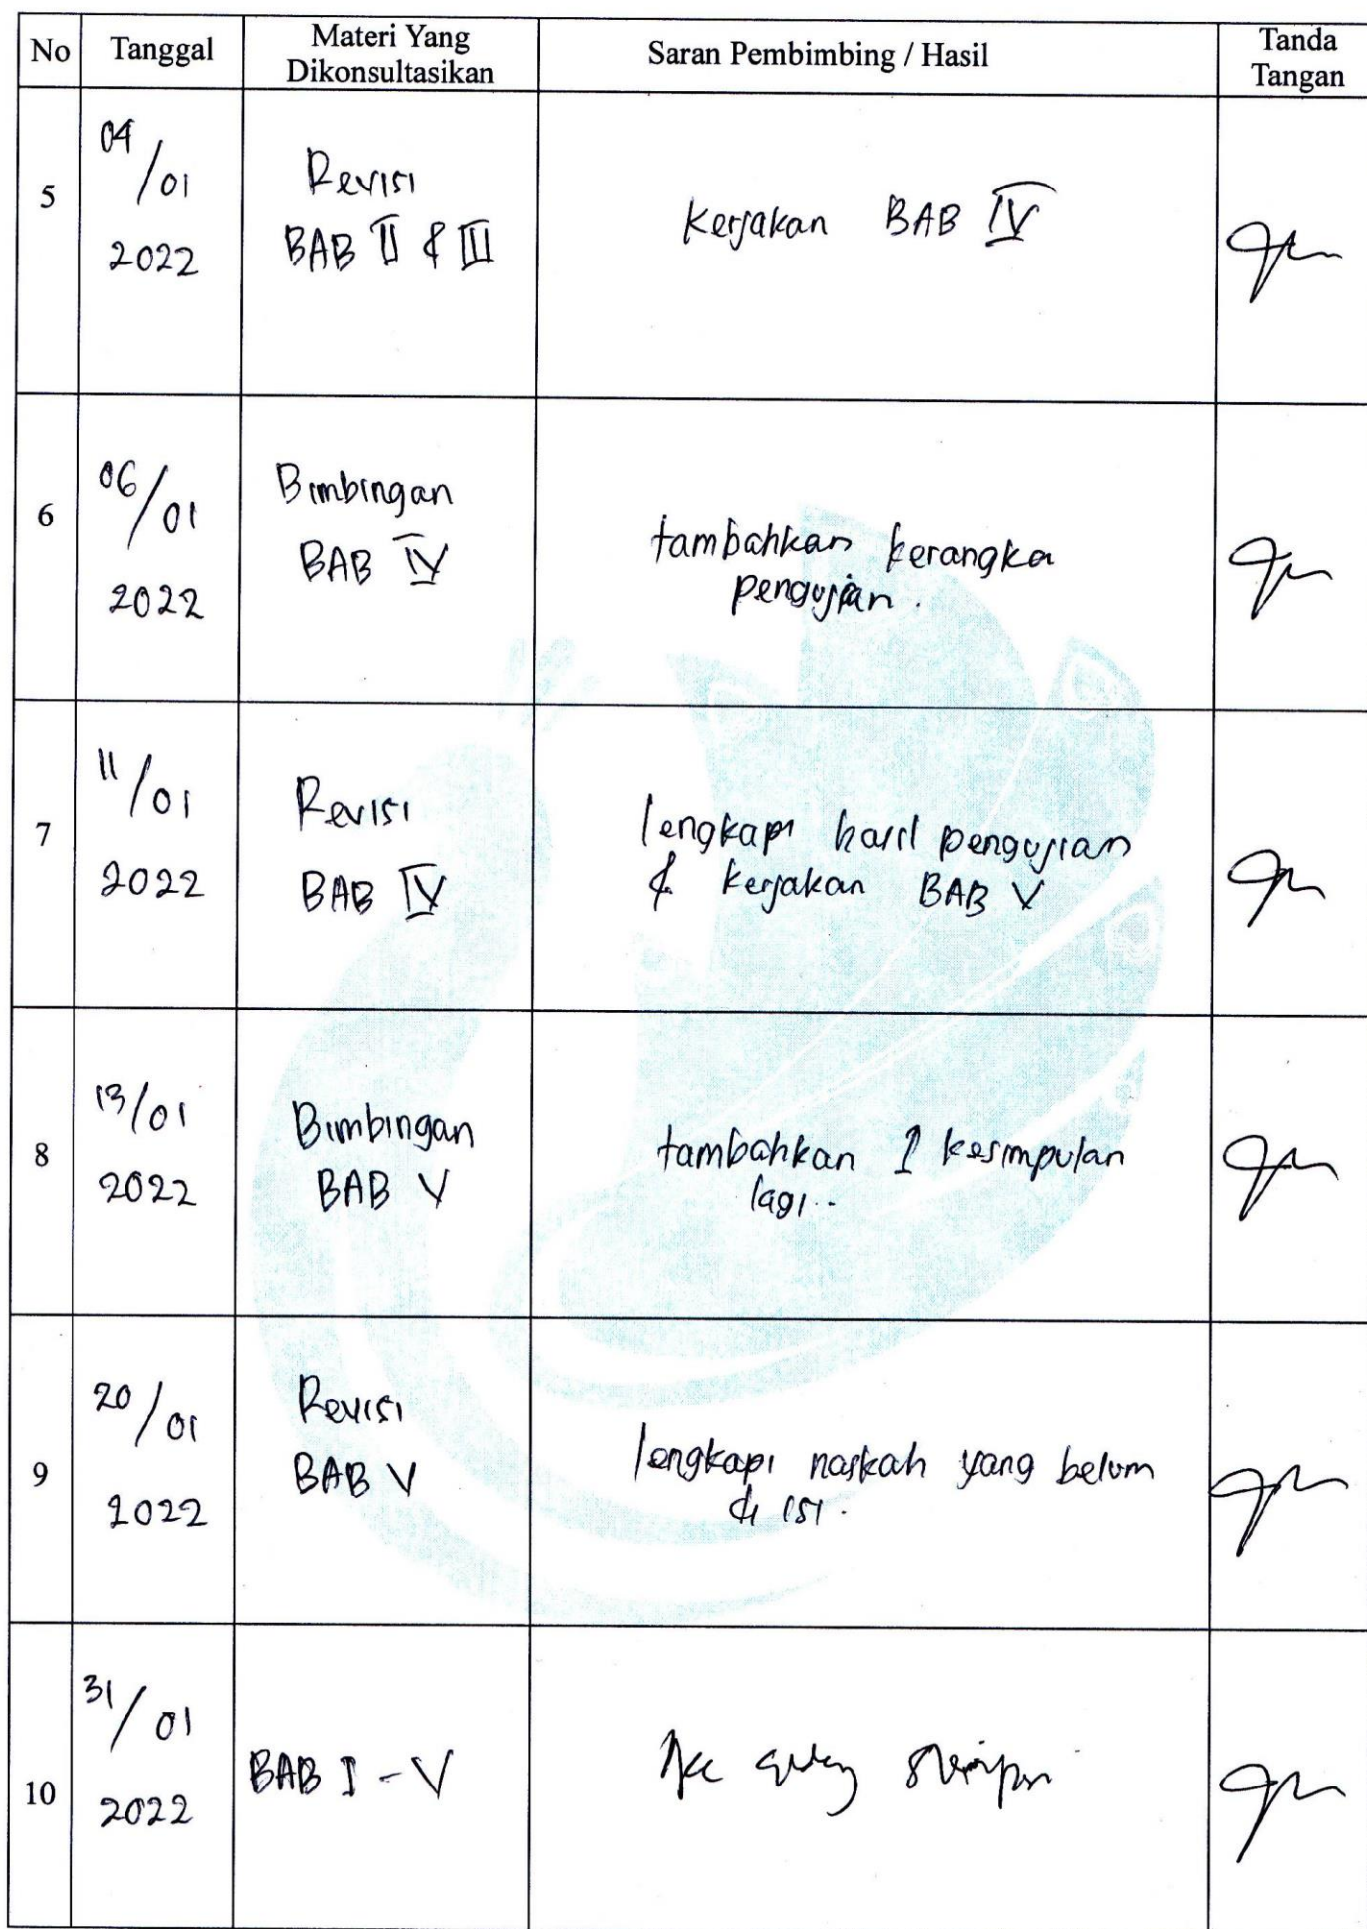 No
Tanggal
Materi Yang
Dikonsultasikan
Saran Pembimbing / Hasil
Tanda
Tangan
5
04/01
2022
Revisi
BAB II & III
kerjakan BAB IV
6
06/01
2022
Bimbingan
BAB IV
tambahkan kerangka
pengujian.
7
11/01
2022
Revisi
BAB IV
lengkapi hasil pengujian
& kerjakan BAB V
8
13/01
2022
Bimbingan
BAB V
tambahkan 1 kesimpulan
lagi..
9
20/01
2022
Revisi
BAB V
lengkapi naskah yang belum
di isi.
10
31/01
2022
BAB I - V
Acc